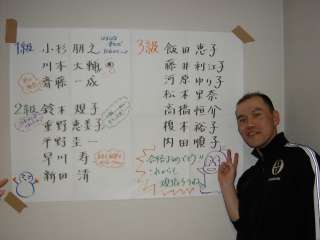 1級 小杉 朋之
川本 大輔
斉藤 一成
2級 鈴木 規子
重野 恵里子
平野 圭一
早川 寿
新田 清
3級 飯田 恵子
藤井 利江子
河原 ゆり子
松本 里奈
高橋 恒介
榎本 裕子
内田 順子
合格おめでとう!!
これからも
頑張ろうね